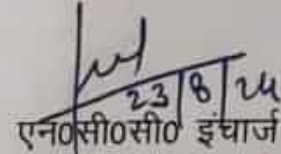 23/8/24
एन०सी०सी० इंचार्ज